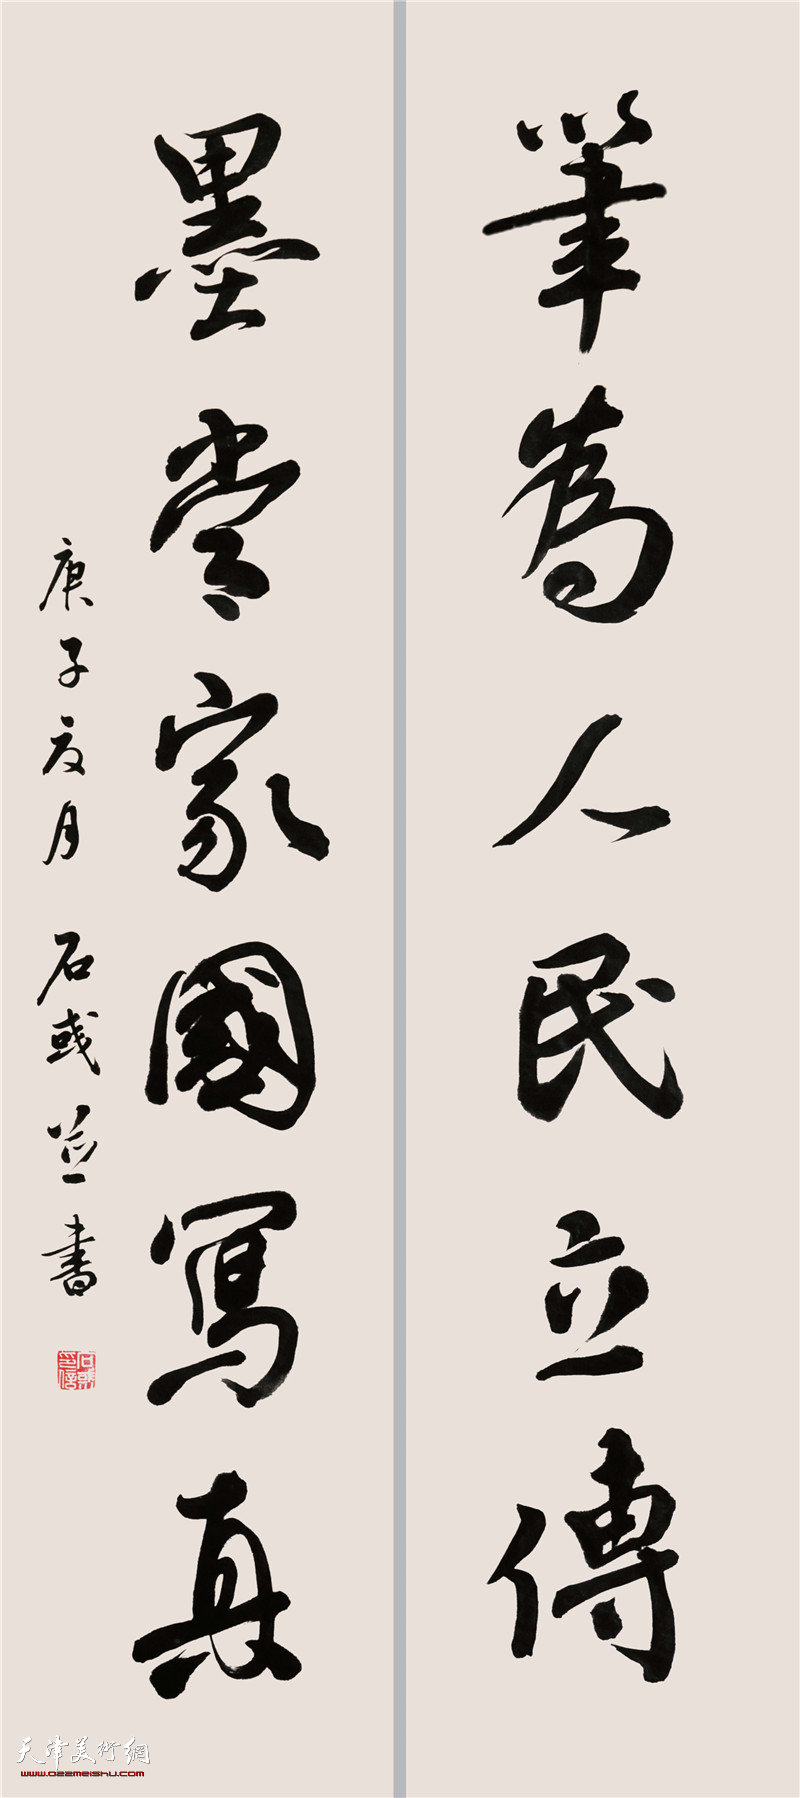 筆為人民立傳
墨家國寫真
庚子夏月 石彧並書
天津美術網
www.022meishu.com